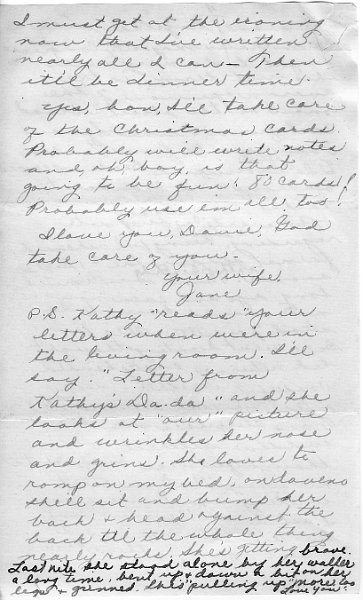 I must get at the ironing
now that I've written
nearly all I can — Then
it'll be dinner time.
Yes, hon, I'll take care
of the Christmas cards.
Probably will write notes
and, oh boy, is that
going to be fun! 80 cards!
Probably use em all too!
I love you, Davie, God
take care of you.
Your wife,
Jane
P.S. Kathy "reads" your
letters when were in
the living room. I'll
say. "Letter from
Kathy's Da-da" and she
looks at "our" picture
and wrinkles her nose
and grins. She loves to
romp on my bed, on daveno
she'll sit and bump her
back & head against the
back till the whole thing
nearly rocks. She's getting brave.
Last nite she stood alone by her walker
a long time, bent up & down a bit on her
legs & grinned. She's pulling up more too
Love you.